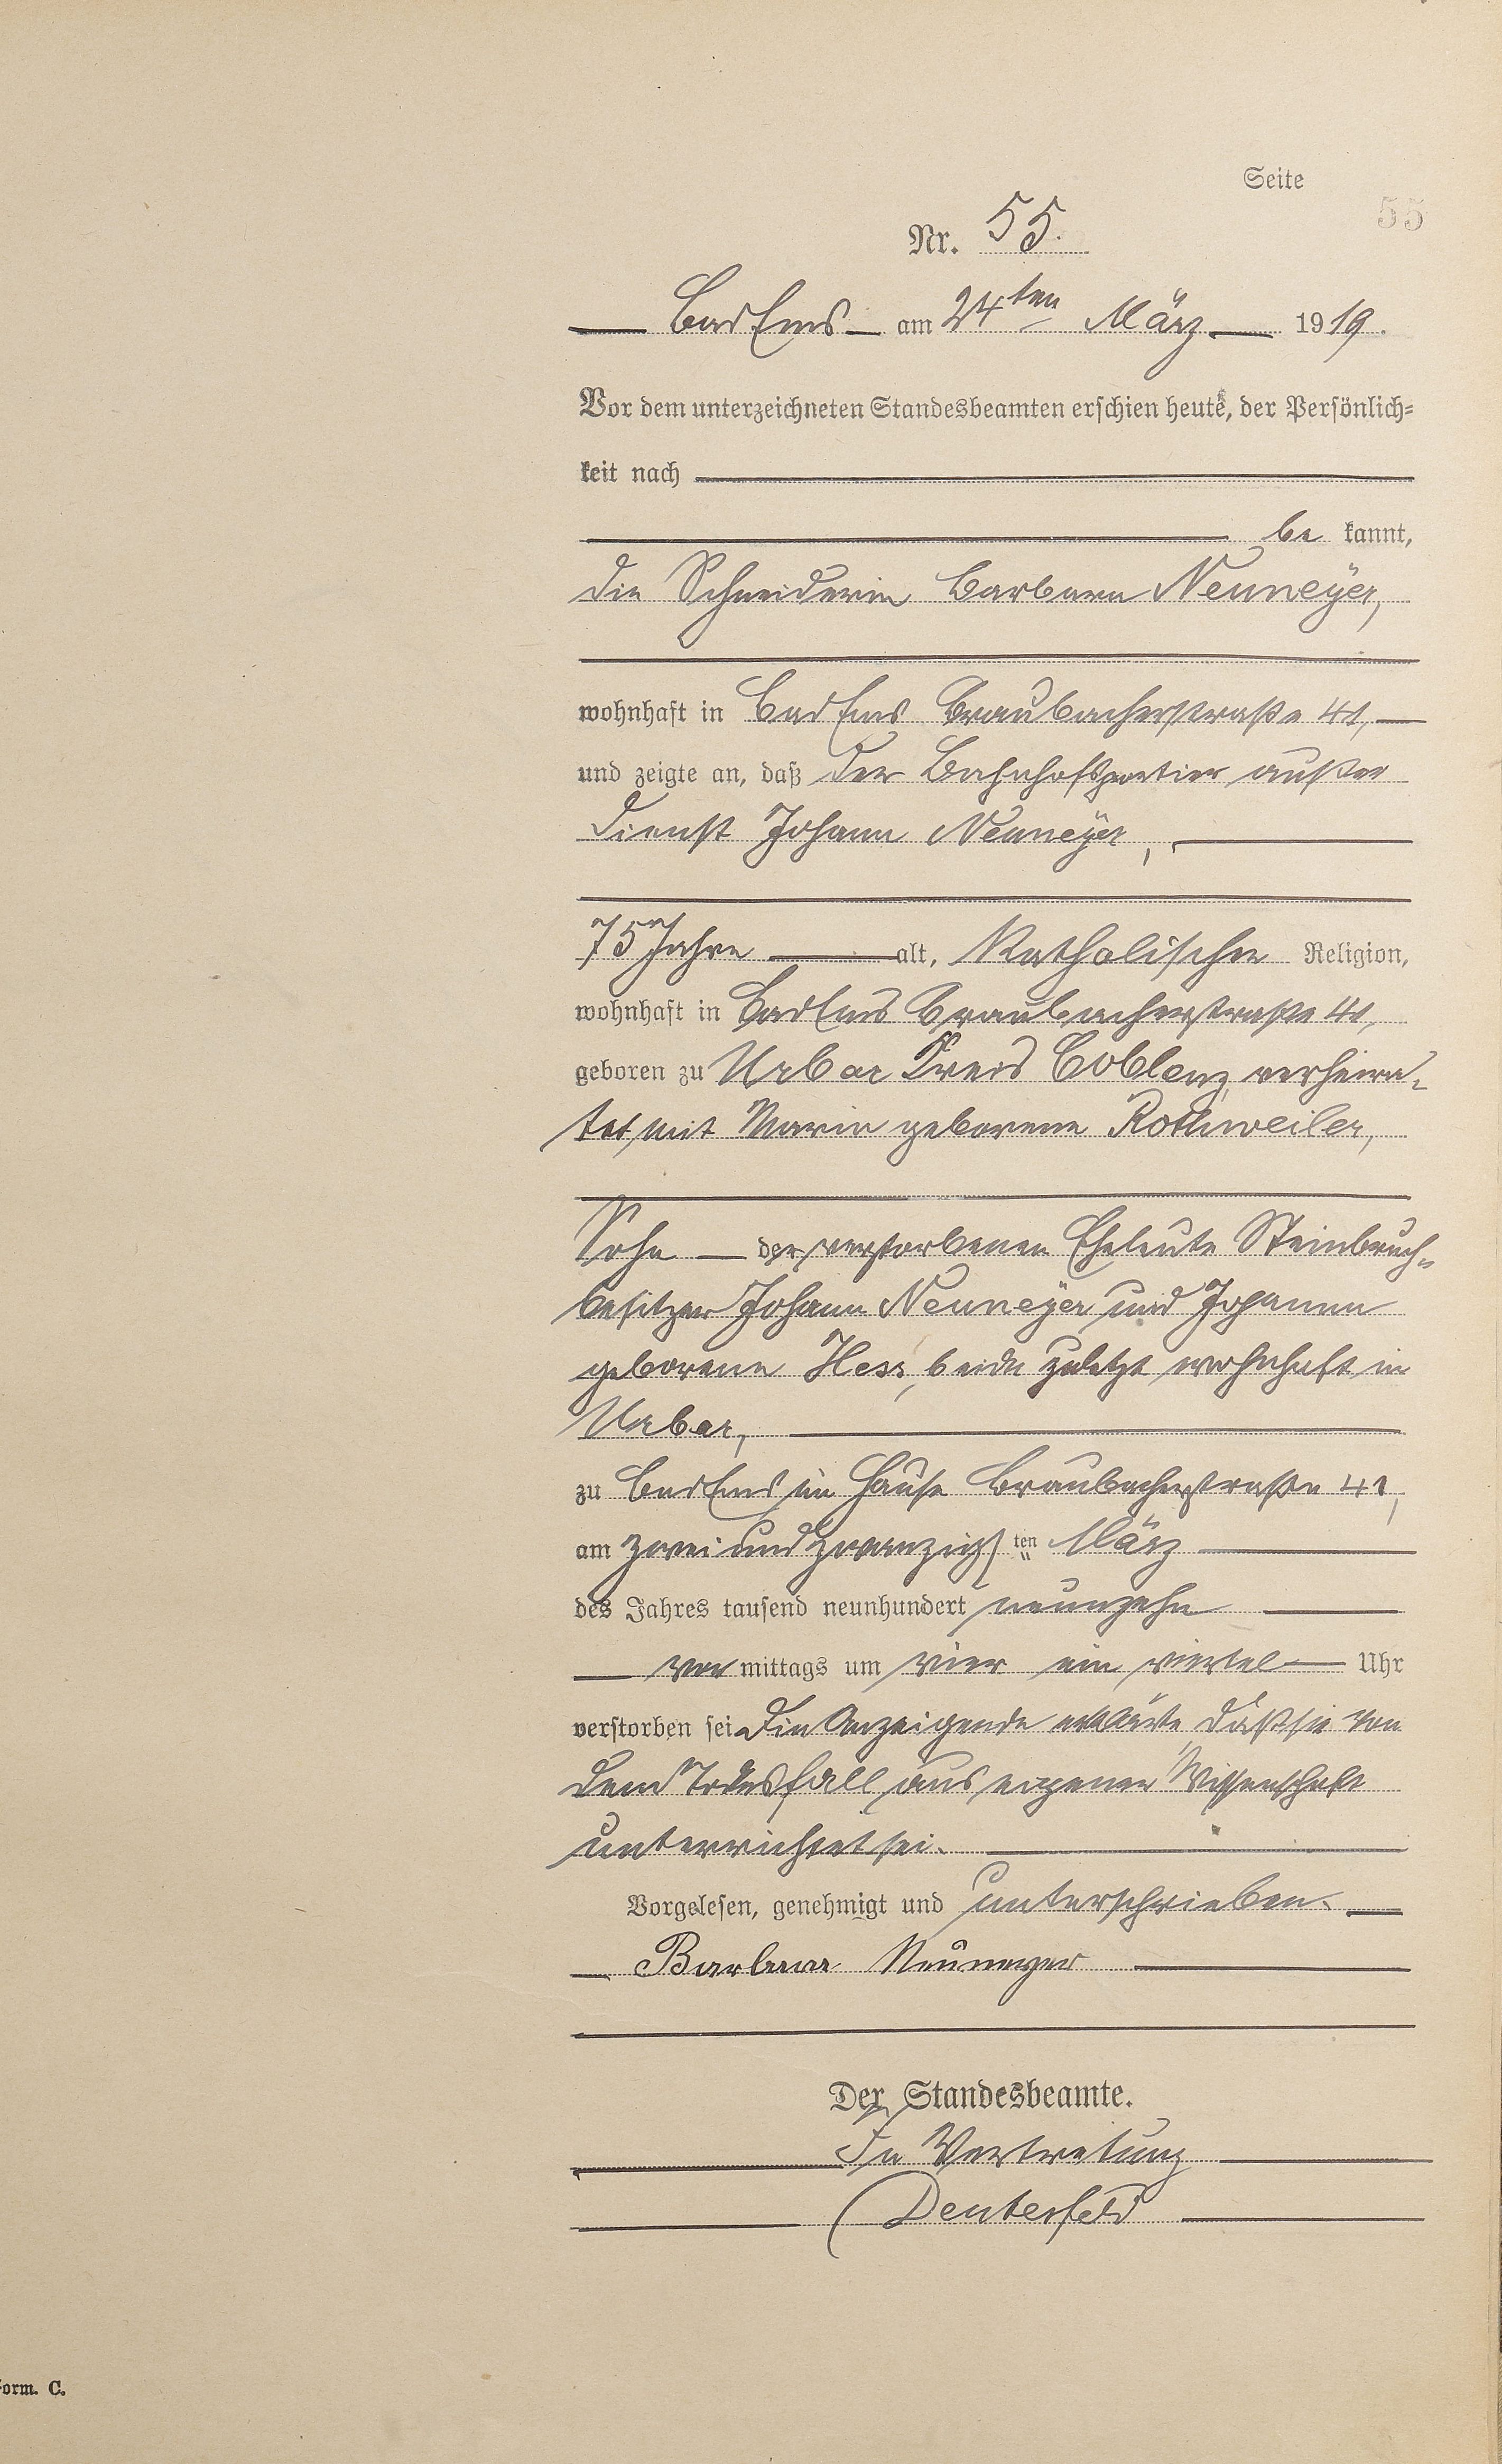 Seite
55
Nr. 55.
Bad Ems am 24ten März 1919.
Vor dem unterzeichneten Standesbeamten erschien heute, der Persönlich=
keit nach
be kannt,
die Schneiderin Barbara Neuneÿer,
wohnhaft in Bad Ems Braubacherstraße 41,
und zeigte an, daß der Bahnhofsportier außer
Dienst Johann Neuneÿer,
75 Jahre alt, Katholischer Religion,
wohnhaft in Bad Ems Braubacherstraße 41,
geboren zu Urbar Kreis Coblenz, verheira-
tet mit Maria geborene Rothweiler,
Sohn der verstorbenen Eheleute Steinbruch=
besitzer Johann Neuneÿer und Johanna
geborene Hess, beide zuletzt wohnhaft in
Urbar,
zu Bad Ems im Hause Braubacherstraße 41,
am zwei und zwanzigs ten März
des Jahres tausend neunhundert neunzehn
vor mittags um vier ein viertel Uhr
verstorben sei Die Anzeigende erklärte, daß sie von
dem Todesfall aus eigener Wissenschaft
unterrichtet sei.
Vorgelesen, genehmigt und unterschrieben.
Barbara Neuneyer
Der Standesbeamte.
In Vertretung
Deuterfeld
Form. C.